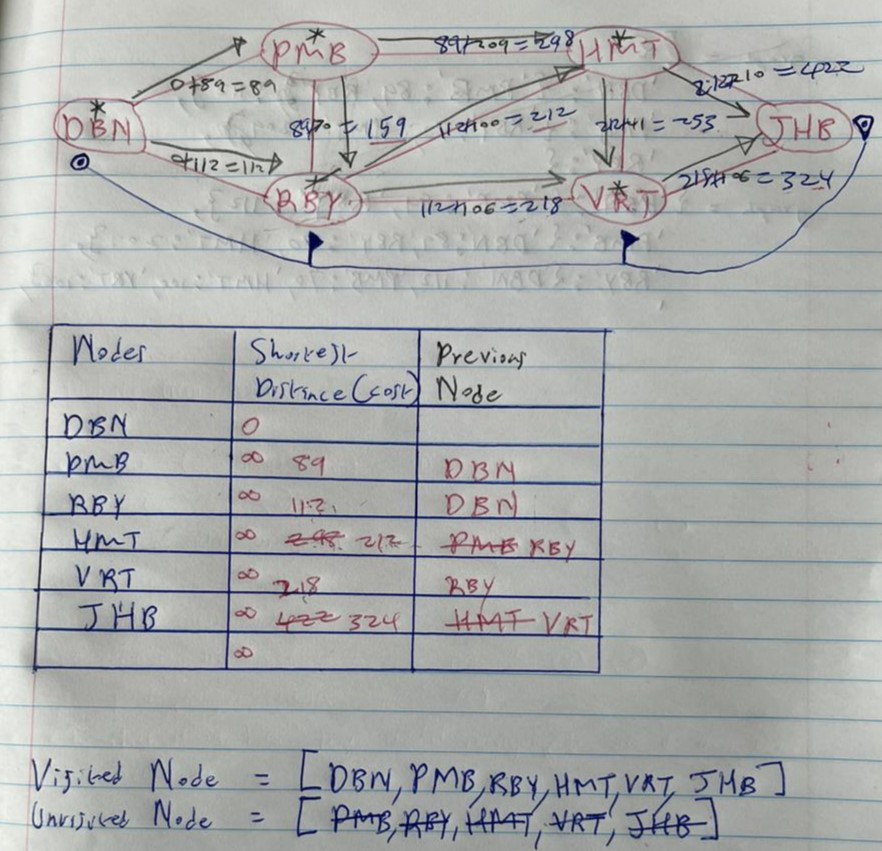 PMB 89+209=298 HMT
0+89=89 212+210=422
DBN 89+70=159 112+100=212 212+41=253 JHB
0+112=112 218+106=324
RBY 112+106=218 VRT
Nodes Shortest Distance (cost) Previous Node
DBN 0
PMB ∞ 89 DBN
RBY ∞ 112 DBN
HMT ∞ 298 212 PMB RBY
VRT ∞ 218 RBY
JHB ∞ 422 324 HMT VRT
∞
Visited Node = [DBN, PMB, RBY, HMT, VRT, JHB]
Unvisited Node = [PMB, RBY, HMT, VRT, JHB]